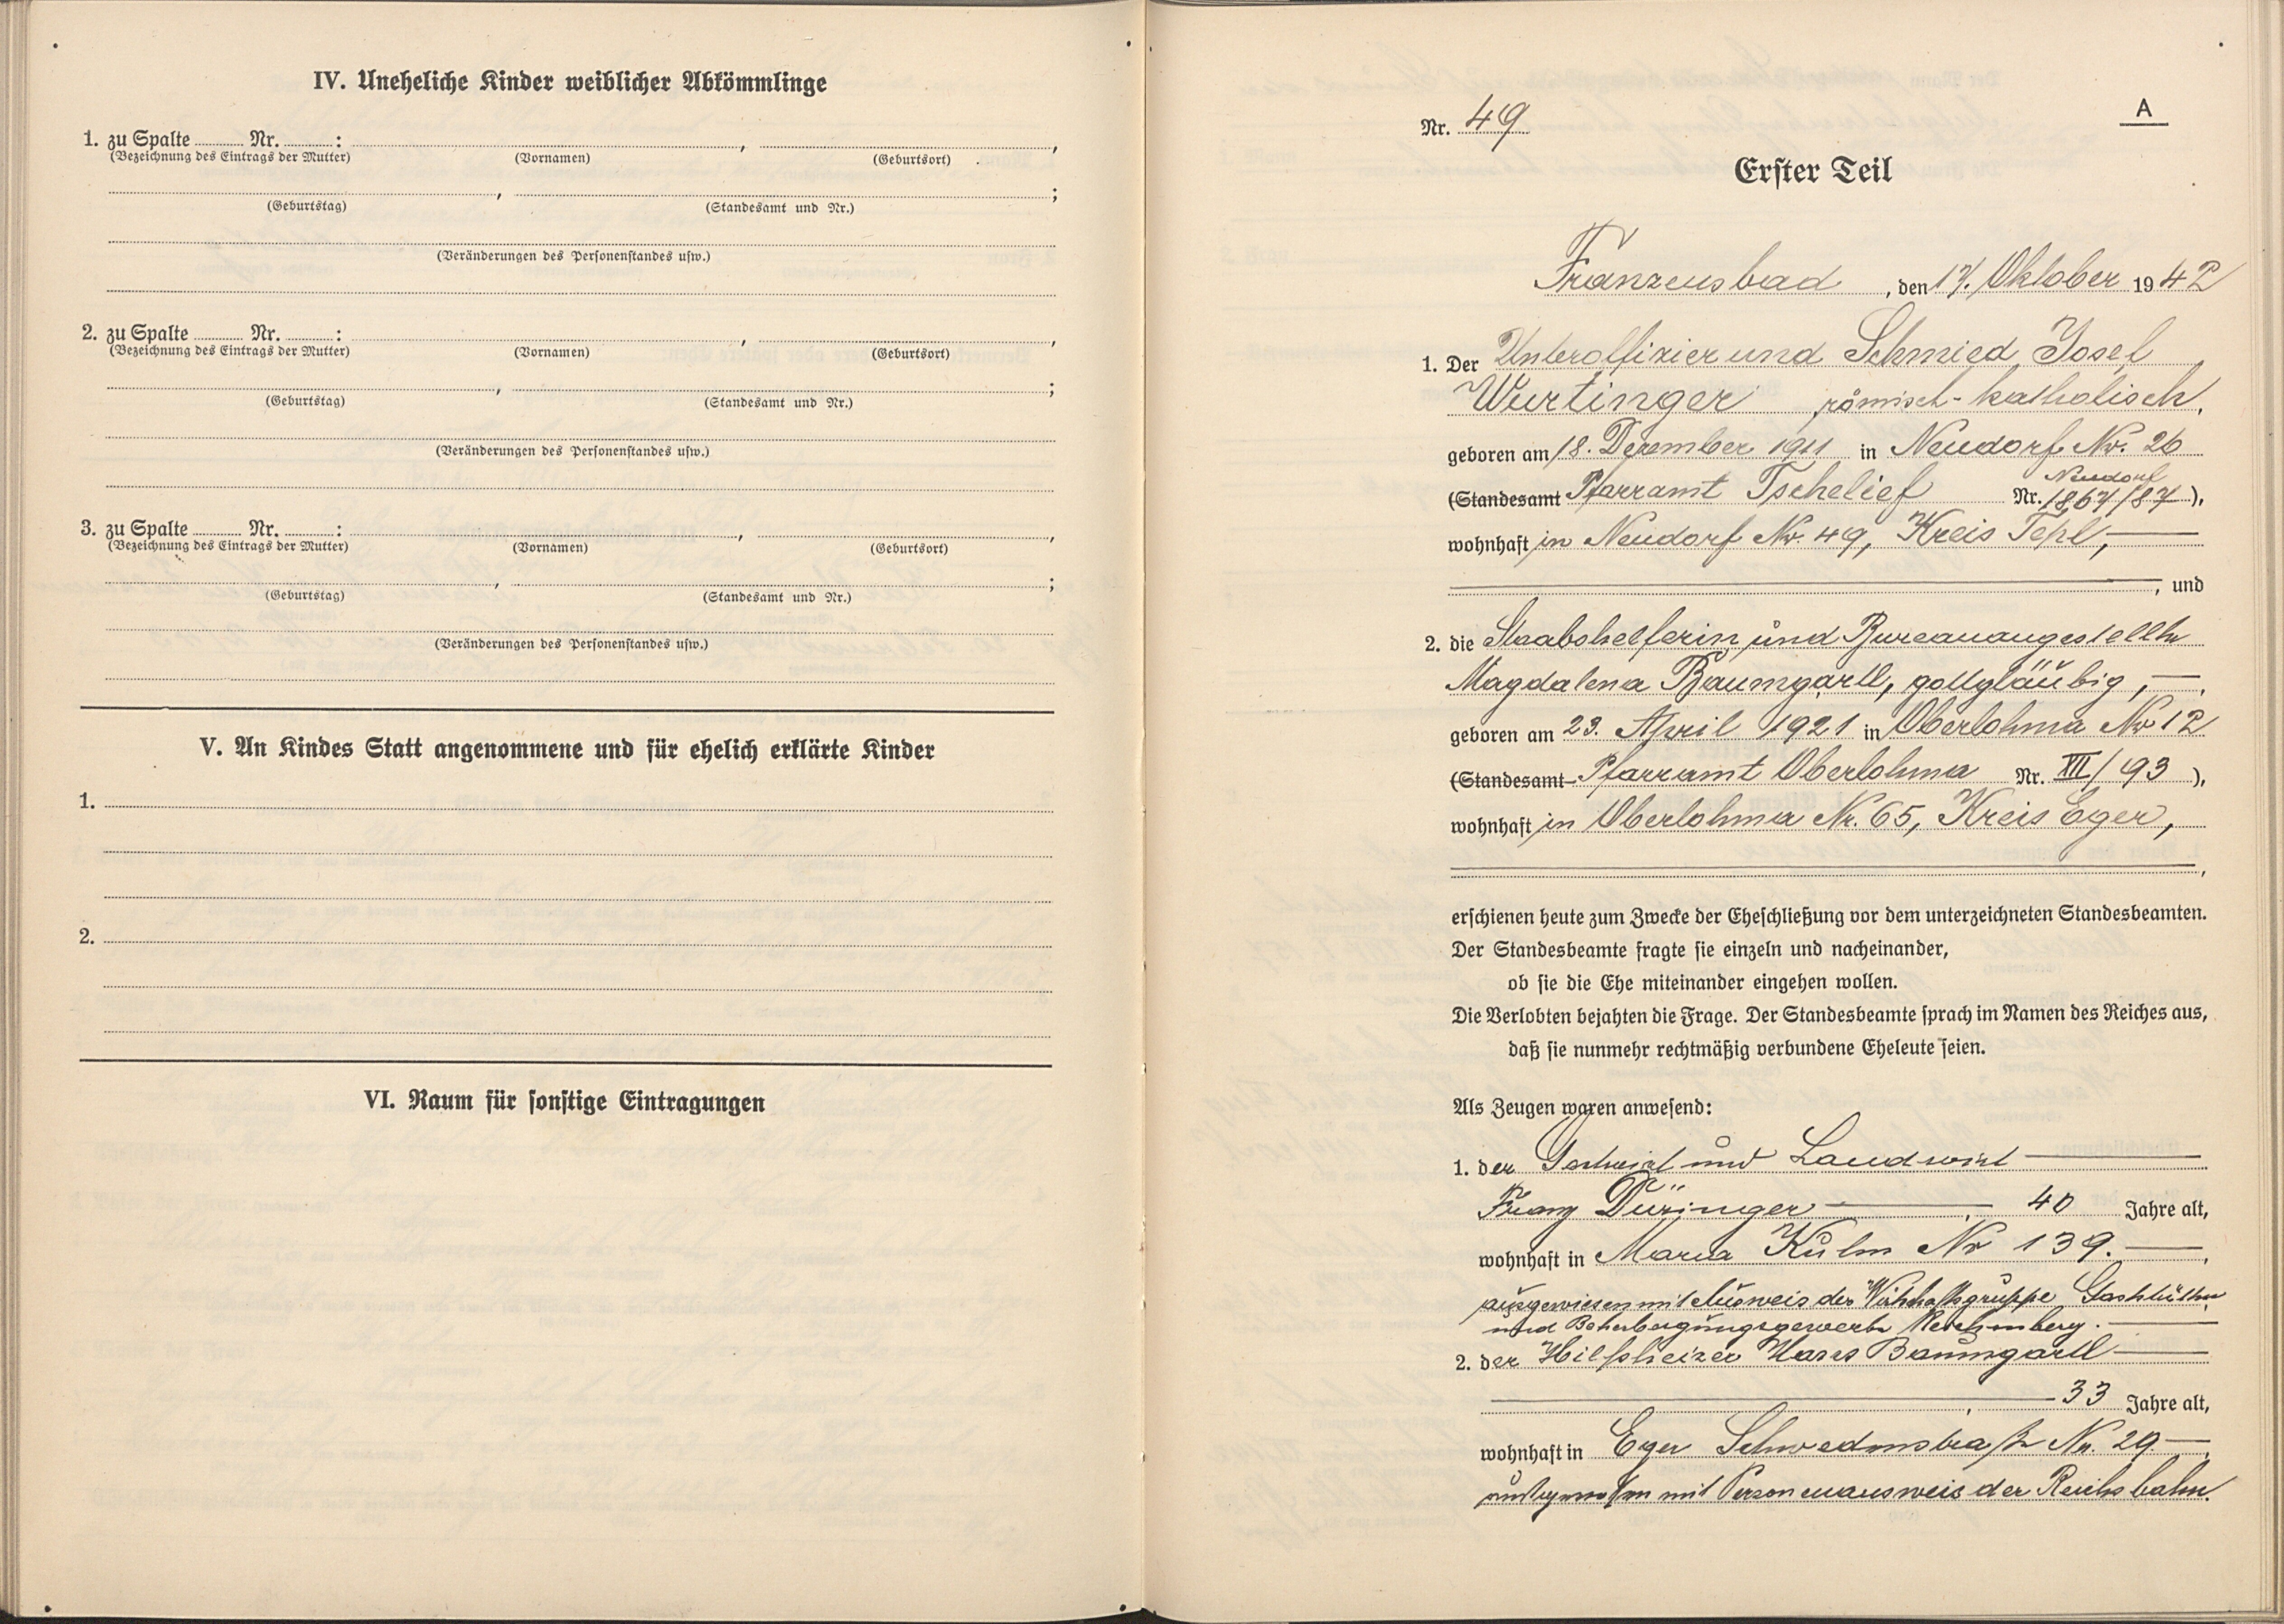 IV. Uneheliche Kinder weiblicher Abkömmlinge
1. zu Spalte ........ Nr. ........ : ........ , ........ ,
(Bezeichnung des Eintrags der Mutter) (Vornamen) (Geburtsort)
........ , ........ ;
(Geburtstag) (Standesamt und Nr.)
(Veränderungen des Personenstandes usw.)
2. zu Spalte ........ Nr. ........ : ........ , ........ ,
(Bezeichnung des Eintrags der Mutter) (Vornamen) (Geburtsort)
........ , ........ ;
(Geburtstag) (Standesamt und Nr.)
(Veränderungen des Personenstandes usw.)
3. zu Spalte ........ Nr. ........ : ........ , ........ ,
(Bezeichnung des Eintrags der Mutter) (Vornamen) (Geburtsort)
........ , ........ ;
(Geburtstag) (Standesamt und Nr.)
(Veränderungen des Personenstandes usw.)
V. An Kindes Statt angenommene und für ehelich erklärte Kinder
1.
2.
VI. Raum für sonstige Eintragungen
A
Nr. 49
Erster Teil
Franzensbad, den 17. Oktober 1942
1. Der Unteroffizier und Schmied Josef
Wurtinger, römisch-katholisch,
geboren am 18. Dezember 1911 in Neudorf Nr. 26
Neudorf
(Standesamt Pfarramt Tschelief Nr. 1867/87),
wohnhaft in Neudorf Nr. 49, Kreis Tepl,
, und
2. die Stabshelferin und Bureauangestellte
Magdalena Baumgartl, gottgläubig,
geboren am 23. April 1921 in Oberlohma Nr 12
(Standesamt Pfarramt Oberlohma Nr. XII/93),
wohnhaft in Oberlohma Nr. 65, Kreis Eger,
erschienen heute zum Zwecke der Eheschließung vor dem unterzeichneten Standesbeamten.
Der Standesbeamte fragte sie einzeln und nacheinander,
ob sie die Ehe miteinander eingehen wollen.
Die Verlobten bejahten die Frage. Der Standesbeamte sprach im Namen des Reiches aus,
daß sie nunmehr rechtmäßig verbundene Eheleute seien.
Als Zeugen waren anwesend:
1. der Gastwirt und Landwirt
Franz Düringer, 40 Jahre alt,
wohnhaft in Maria Kulm Nr 139.
ausgewiesen mit Ausweis der Wirtschaftsgruppe Gaststätten
und Beherbergungsgewerbe Reichenberg.
2. der Hilfsheizer Hans Baumgartl
, 33 Jahre alt,
wohnhaft in Eger Schwedenstraße Nr. 29
ausgewiesen mit Personenausweis der Reichsbahn.